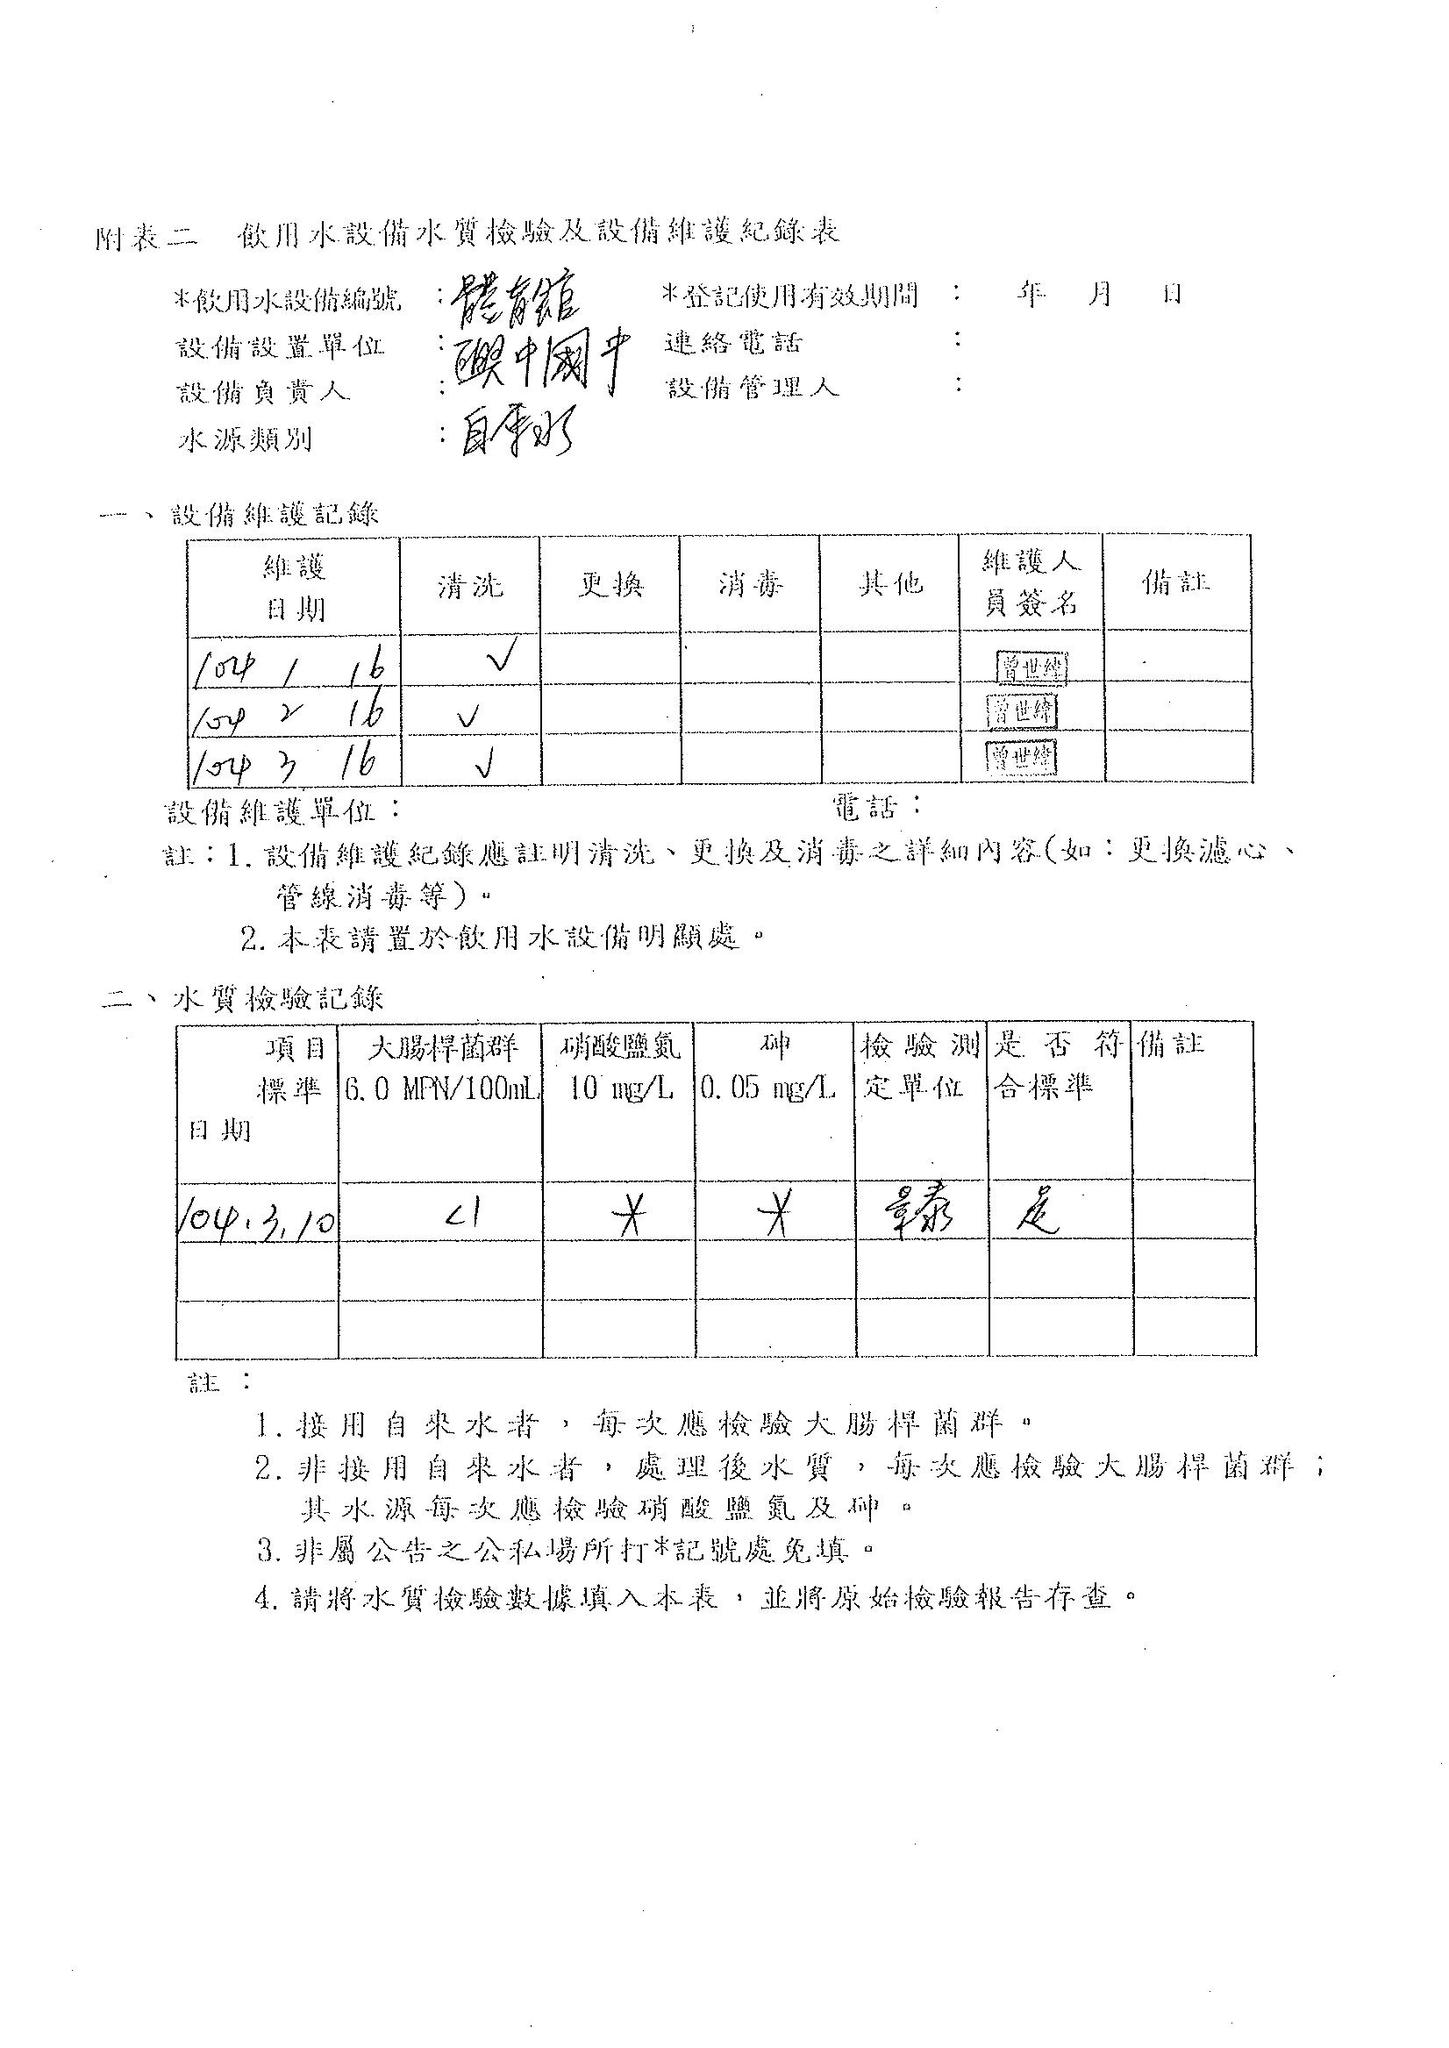 附表二 飲用水設備水質檢驗及設備維護紀錄表
*飲用水設備編號 ：體育館 *登記使用有效期間 ： 年 月 日
設備設置單位 ：興中國中 連絡電話 ：
設備負責人 ： 設備管理人 ：
水源類別 ：自來水
一、設備維護記錄
維護日期 清洗 更換 消毒 其他 維護人員簽名 備註
104 1 16 ✓ 曾世緯
104 2 16 ✓ 曾世緯
104 3 16 ✓ 曾世緯
設備維護單位： 電話：
註：1. 設備維護紀錄應註明清洗、更換及消毒之詳細內容(如：更換濾心、
管線消毒等)。
2. 本表請置於飲用水設備明顯處。
二、水質檢驗記錄
項目 大腸桿菌群 硝酸鹽氮 砷 檢驗測 是否符 備註
標準 6.0 MPN/100mL 10 mg/L 0.05 mg/L 定單位 合標準
日期
104.3.10 <1 * * 泰 是
註：
1. 接用自來水者，每次應檢驗大腸桿菌群。
2. 非接用自來水者，處理後水質，每次應檢驗大腸桿菌群；
其水源每次應檢驗硝酸鹽氮及砷。
3. 非屬公告之公私場所打*記號處免填。
4. 請將水質檢驗數據填入本表，並將原始檢驗報告存查。